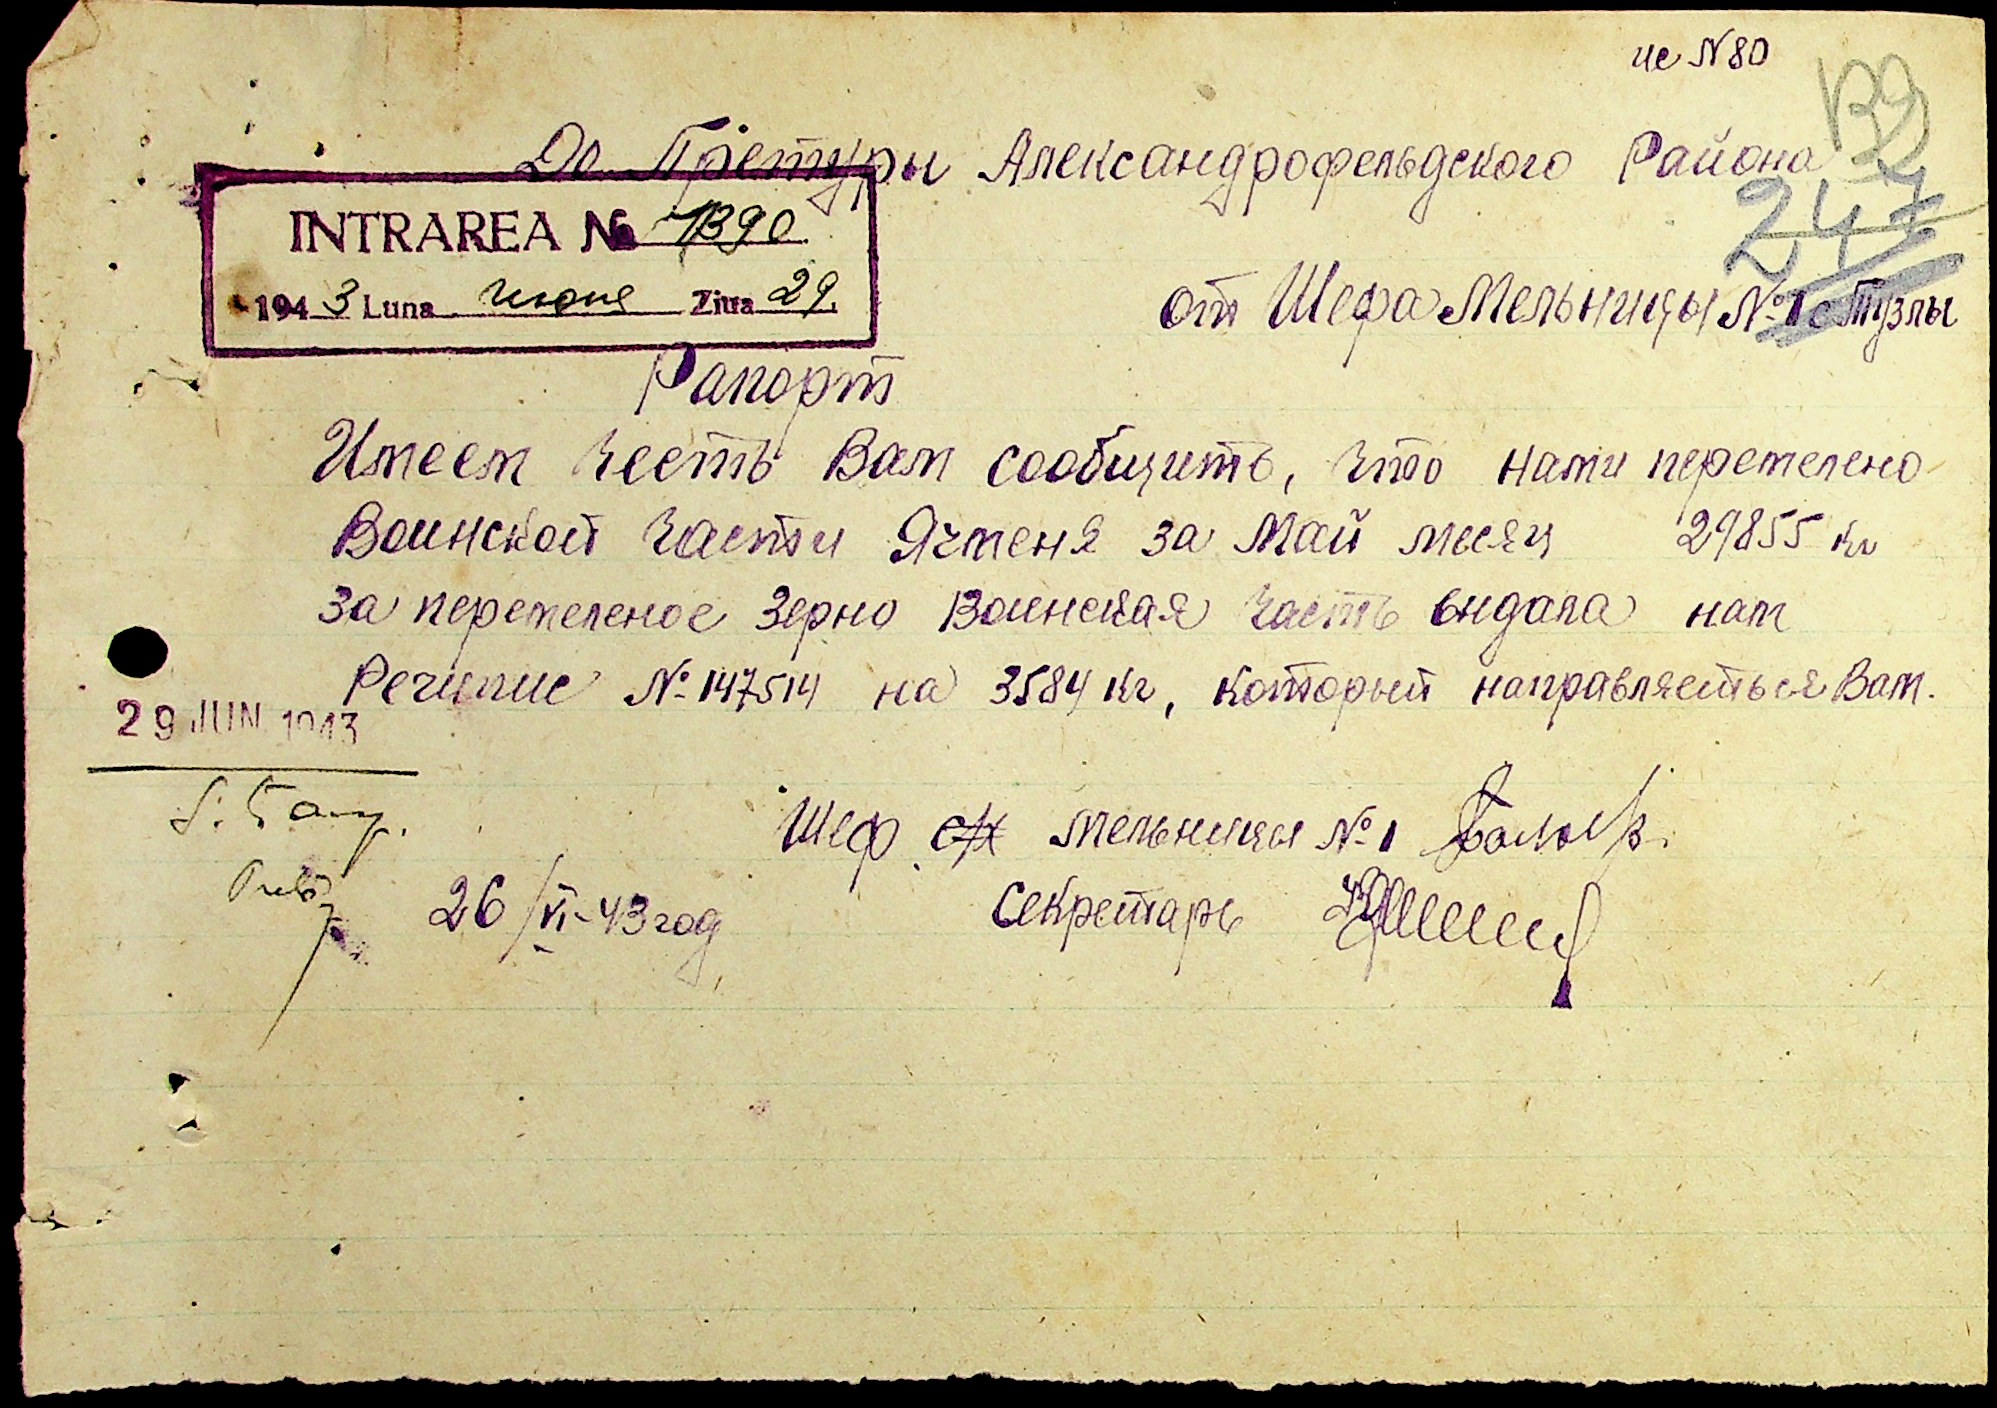 ис N 80
До Претуры Александрофельдского Района
247
INTRAREA № 1390
1943 Luna июня Ziua 29.
от Шефа Мельницы № 1 с Тузлы
Рапорт
Имеем честь Вам сообщить, что нами перемелено
Воинской Части Ячменя за Май месяц 29855 кг
за перемеленое зерно Воинская Часть видала нам
Речипис № 147514 на 3584 кг, который направляеться Вам.
29 JUN 1943
Шеф Мельницы № 1
26/VI-43 год
Секретарь